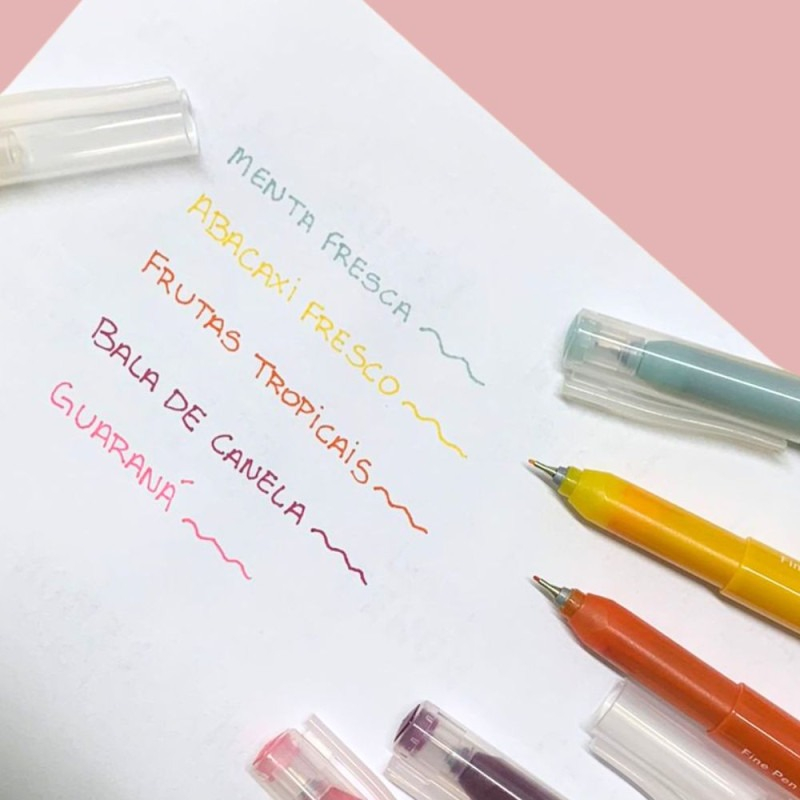 MENTA FRESCA
ABACAXI FRESCO
FRUTAS TROPICAIS
BALA DE CANELA
GUARANÁ
Fine Pen